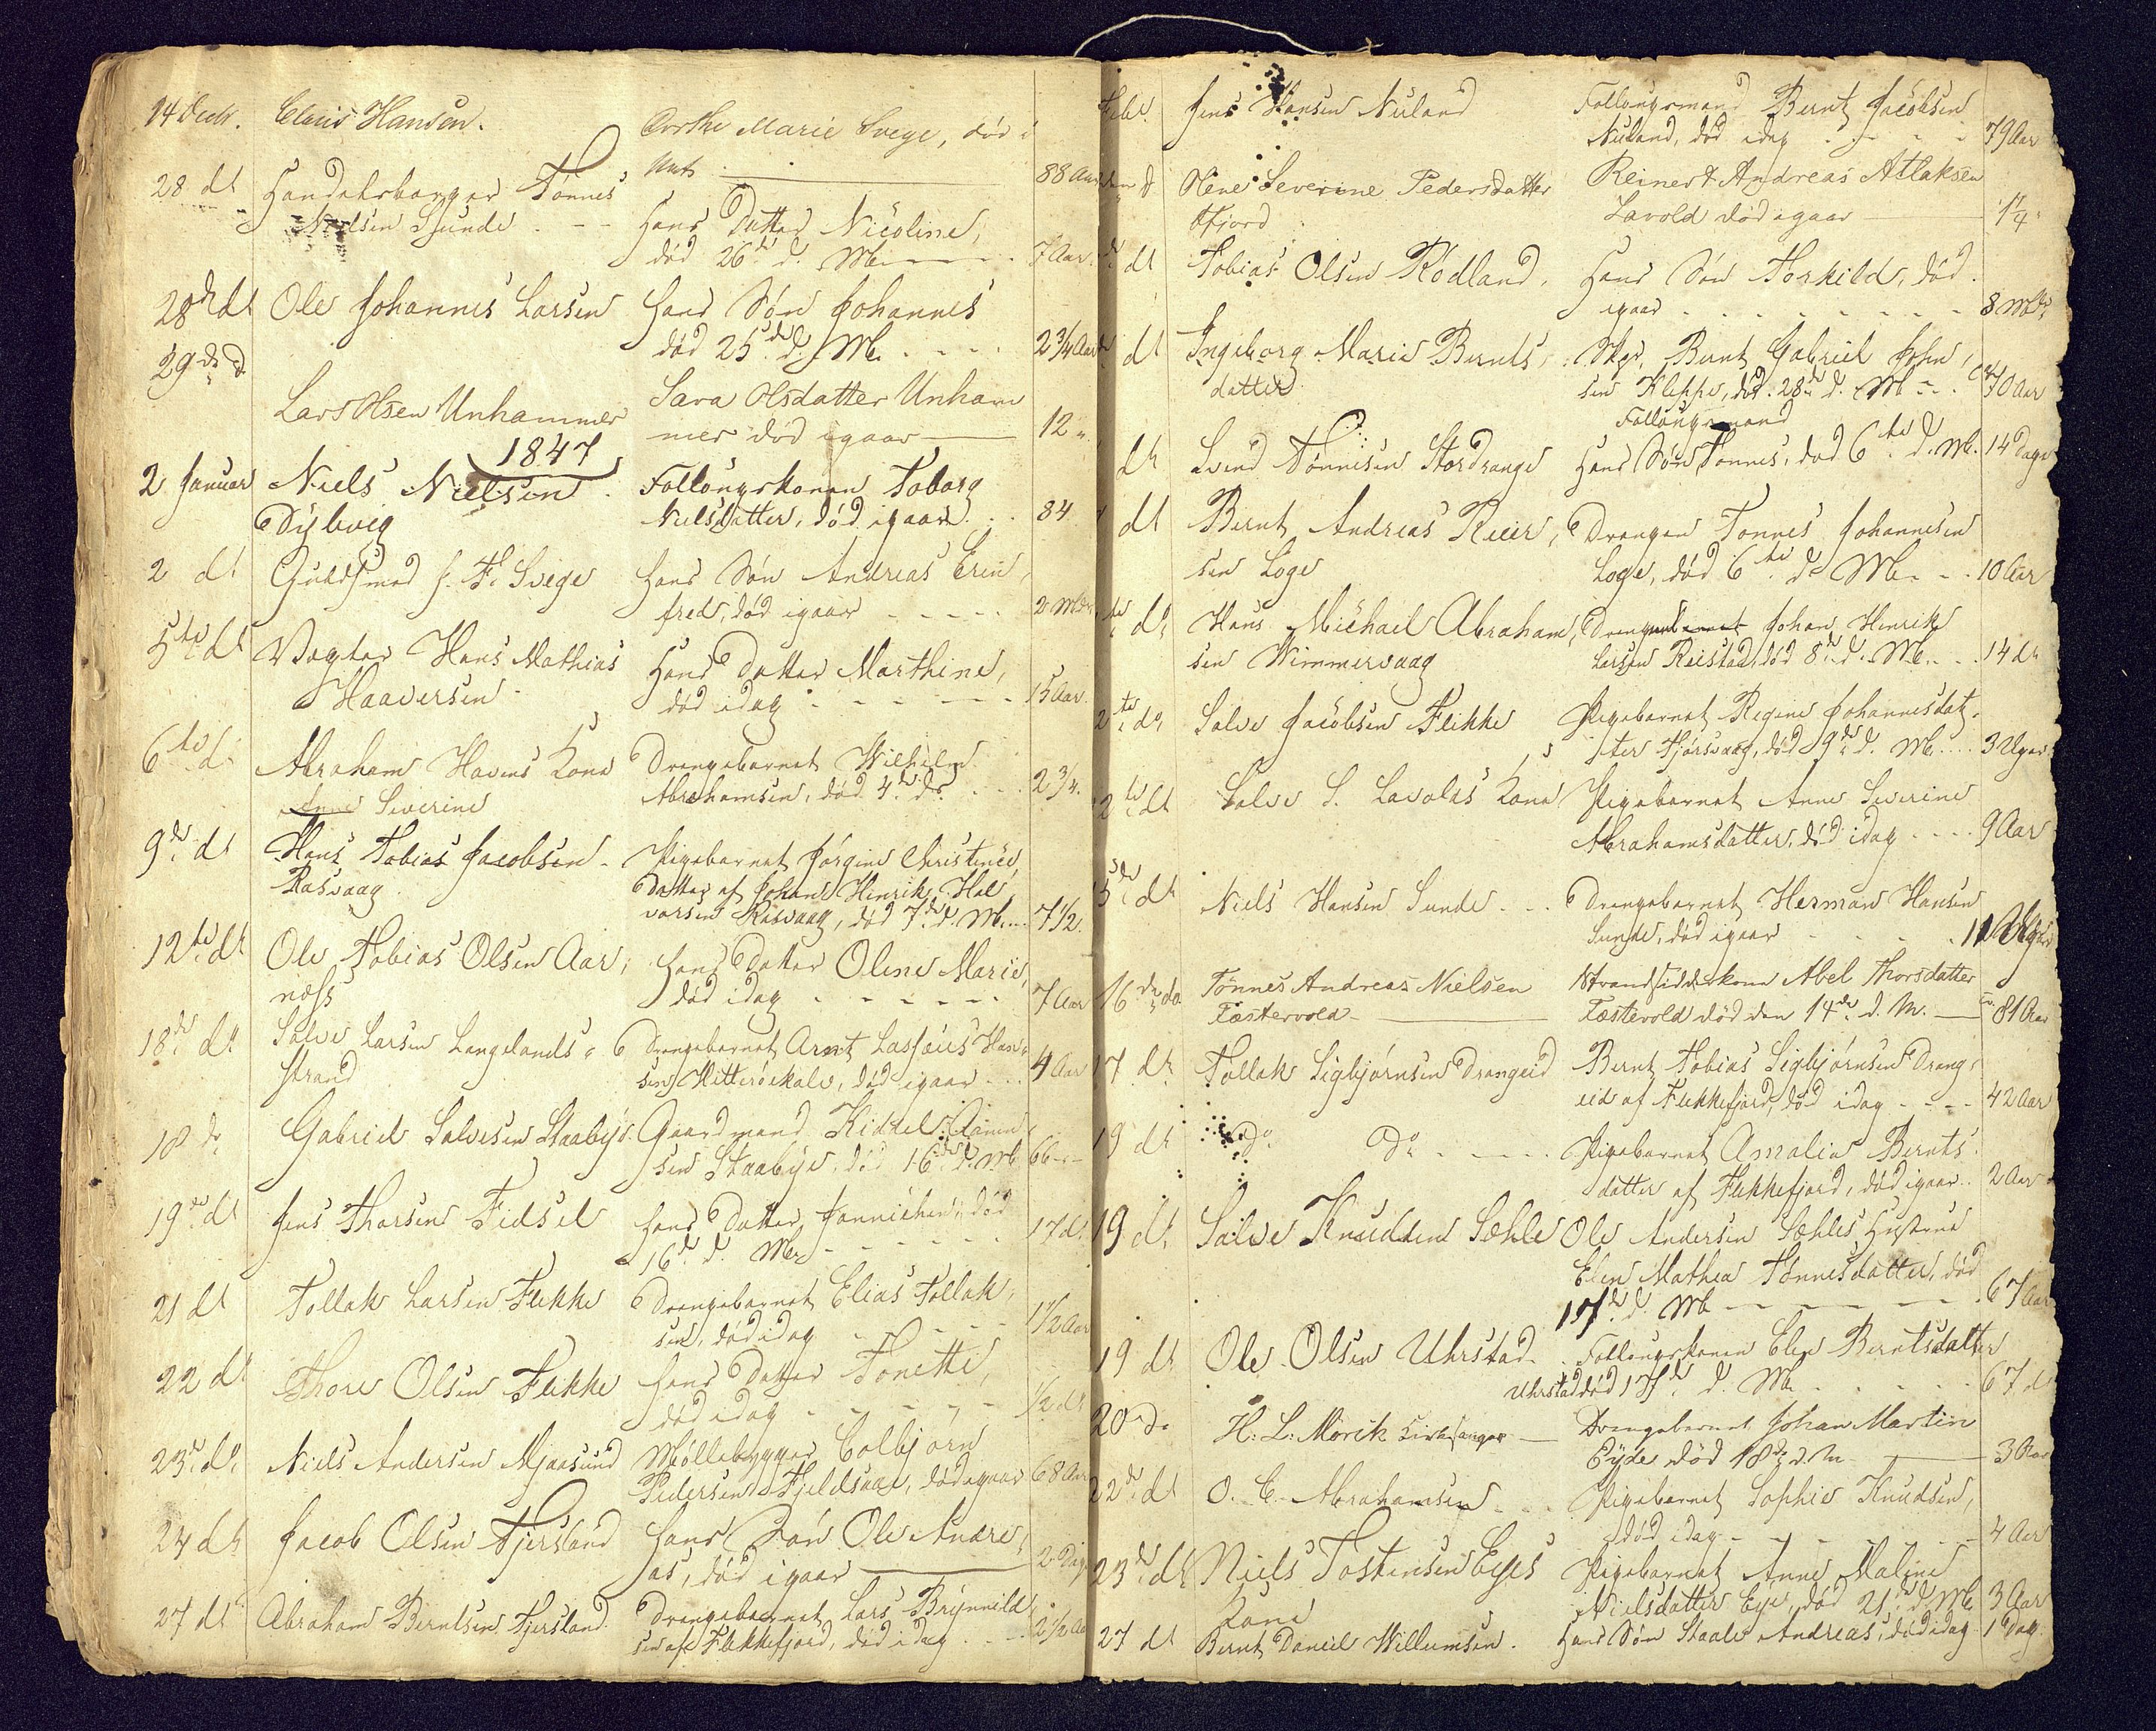 14 Decbr. Claus Hansen. Dorthe Marie Svege, død i
Nat 88 Aar
28 dt Handelsborger Tønnes
Nielsen Sunde Hans Datter Nicoline,
død 26de d. Mt. 7 Aar.
28de dt Ole Johannes Larsen Hans Søn Johannes
død 25de d. Mt. 2 3/4 Aar
29de d.
Lars Olsen Unhammer Sara Olsdatter Unham
mer død igaar 12
1847
2 Januar Niels Nielsen Follougskonen Toborg
Dybvig Nielsdatter, død igaar 84
2 dt Guldsmed J. F. Svege Hans Søn Andreas Erin,
fred, død igaar 2 Mdr.
5te dt Vegter Hans Mathias Hans Datter Marthine,
Haaversen død idag 15 Aar
6te d. Abraham Havens Kone Drengebarnet Wilhelm
Anne Severine Abrahamsen, død 4de ds. 2 3/4.
9de dt Hans Tobias Jacobsen Pigebarnet Jørgine Christence,
Rasvaag. Datter af Johan Hinrik Hal,
vorsen Risvaag, død 7de d. Mt. 7 1/2.
12te dt Ole Tobias Olsen Aar, Hans Datter Oline Marie,
næss død idag 7 Aar
18de dt Salve Larsen Langelands Drengebarnet Arnt Lassæus Han
strand sen Hitterøekalv, død igaar 4 Aar
18 dt Gabriel Salvesen Staabye Gaardmand Kiddel Aanen
sen Staabye, død 16de d. Mt 66
19de dt Jens Thorsen Fidsel Hans Datter Jannichen, død
16de d. Mt. 17 dt
21 dt Tollak Larsen Flikke Drengebarnet Elias Tollak,
sen, død idag 1 1/2 Aar
22 dt Thore Olsen Flikke Hans Datter Tonette,
død idag 1/2 dt
23de dt. Niels Andersen Mjaasund Møllebygger Colbjørn
Pedersen Fjeldsaae, død igaar 68 Aar
24 dt Jacob Olsen Fjersland Hans Søn Ole Andre,
as, død igaar 2 Dage
27 dt Abraham Berntsen Fjersland Drengebarnet Lars Brynnild
sen af Flekkefjord, død idag 2 1/2 Aar
Febr. Jens Hansen Nuland Follougsmand Bernt Jacobsen
Nuland, død idag 79 Aar
Olene Severine Pedersdatter Reinert Andreas Atlaksen
Fjord Lavold død igaar 1/4
dt Tobias Olsen Rødland, Hans Søn Torkild, død
igaar 8 Mdr
dt Ingeborg Marie Bernts, Skpr. Bernt Gabriel John,
datter sen Kleppe, død 28de d. Mt 70 Aar
Follougsmand
dt Svend Tønnesen Stordrange Hans Søn Tønnes, død 6te d. Mt. 14 Dage
dt Bernt Andreas Reier, Drengen Tonnes Johannesen
sen Loge Loge, død 6te d. Mt. 10 Aar
te dt Hans Michael Abraham, Johan Hinrik
sen Wimmersvaag Larsen Reistad, død 8de d. Mt. 14 dt
2te dt Salve Jacobsen Flikke Pigebarnet Regine Johannesdat,
ter Fjørsvaag, død 9de d. Mt. 3 Uger
2te dt Salve S. Lavolds Kone Pigebarnet Anne Severine
Abrahamsdatter, død idag 9 Aar
5de dt Niels Hansen Sunde Drengebarnet Herman Hansen
Sunde, død igaar 11 Uger
16de do Tønnes Andreas Nielsen Strandsidderkone Abel Thorsdatter
Tæstevold Tæstevold død den 14de d. M. 81 Aar
17 dt Tollak Sigbjørnsen Drangeid Bernt Tobias Sigbjørnsen Drang,
eid af Flekkefjord, død idag 42 Aar
19 dt Do Do Pigebarnet Amalia Bernts
datter af Flekkefjord, død igaar 2 Aar
19 dt Salve Knudsen Sæhle Ole Andersen Sæhles Hustrue
Elen Mathea Tønnesdatter, død
17de d. Mt 67 Aar
19 dt Ole Olsen Uhrstad Follougskonen Elen Berntsdatter
Uhrstad død 17de d. Mt. 67 dt
20 do H. L. Mörck Kirkesanger Drengebarnet Johan Martin
Eyde død 18de d. M. 3 Aar
22de dt O. C. Abrahamsen Pigebarnet Sophie Knudsen,
død idag 4 Aar
23de dt Niels Tostensen Eyes Pigebarnet Anne Maline
Kone Nielsdatter Eye, død 21de d. Mt 3 Aar
27 dt Bernt Daniel Willumsen. Hans Søn Staale Andreas, død idag 1 Dag